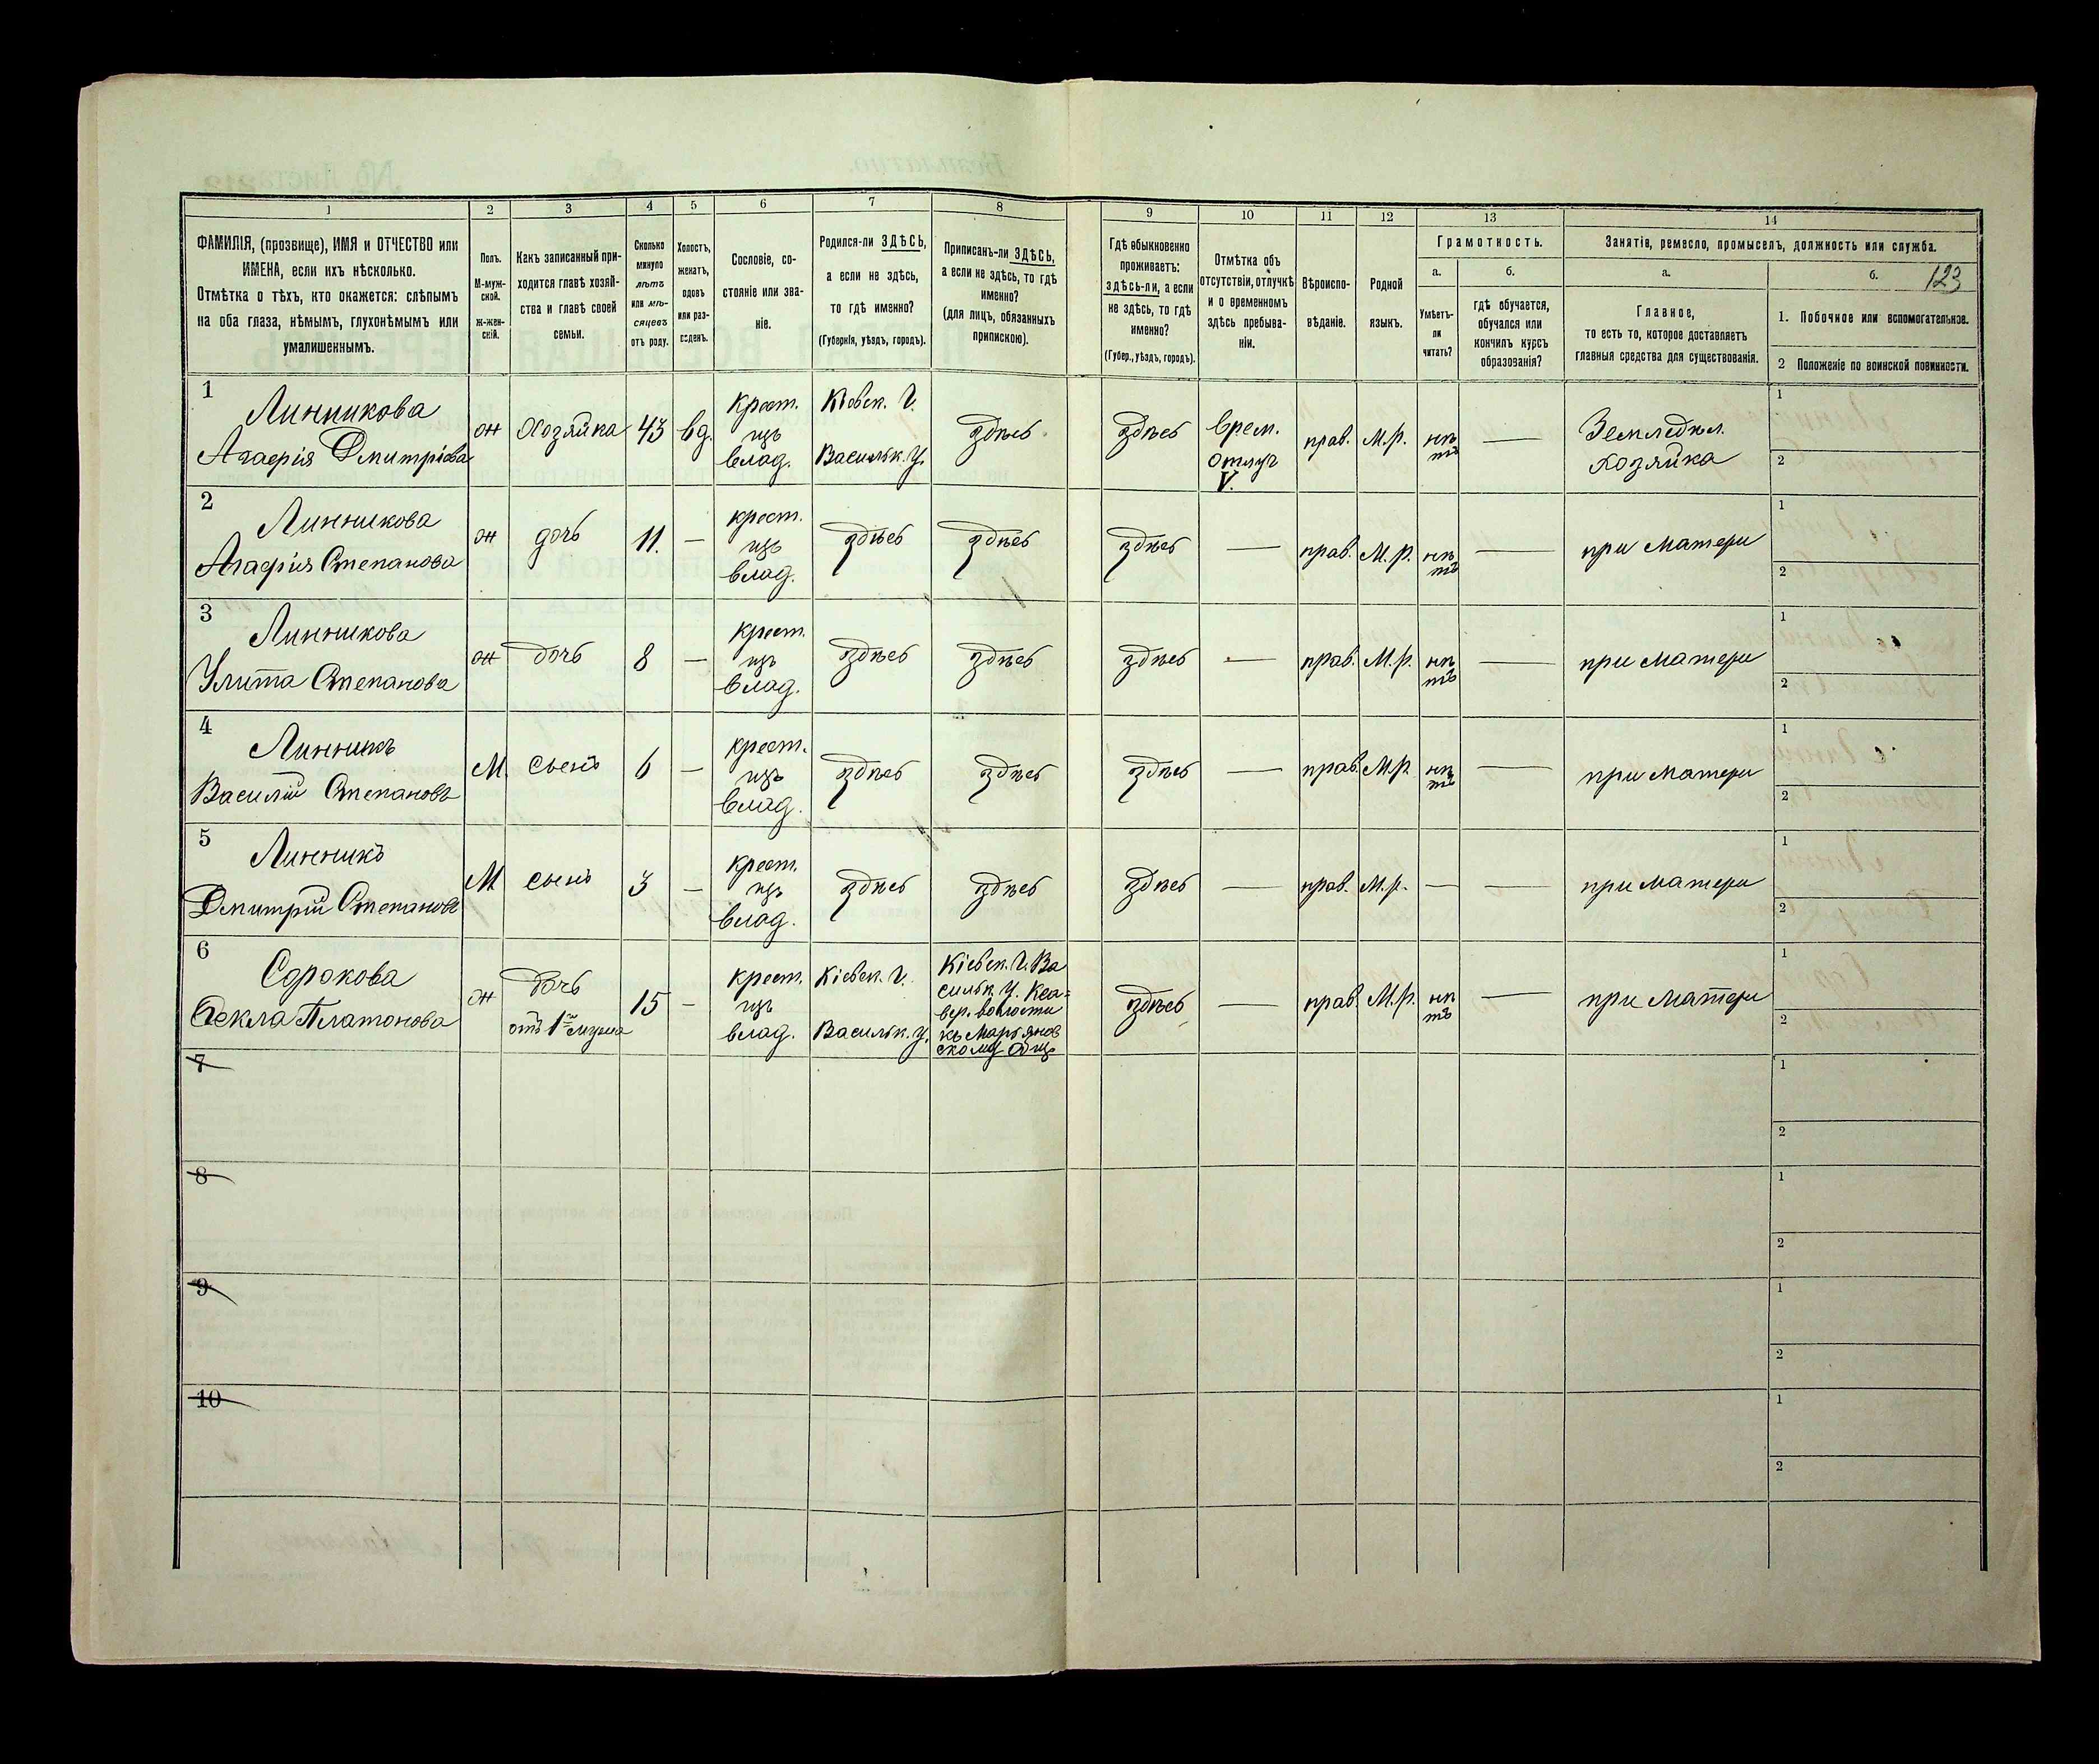 1
2
3
4
5
6
7
8
9
10
11
12
13
14
ФАМИЛІЯ, (прозвище), ИМЯ и ОТЧЕСТВО или
ИМЕНА, если ихъ нѣсколько.
Отмѣтка о тѣхъ, кто окажется: слѣпымъ
на оба глаза, нѣмымъ, глухонѣмымъ или
умалишеннымъ.
Полъ.
М-муж-
ской.
ж-жен-
скій.
Какъ записанный при-
ходится главѣ хозяй-
ства и главѣ своей
семьи.
Сколько
минуло
лѣтъ
или мѣ-
сяцевъ
отъ роду.
Холостъ,
женатъ,
вдовъ
или раз-
веденъ.
Сословіе, со-
стояніе или зва-
ніе.
Родился-ли ЗДѢСЬ,
а если не здѣсь,
то гдѣ именно?
(Губернія, уѣздъ, городъ).
Приписанъ-ли ЗДѢСЬ,
а если не здѣсь, то гдѣ
именно?
(для лицъ, обязанныхъ
припискою).
Гдѣ обыкновенно
проживаетъ:
здѣсь-ли, а если
не здѣсь, то гдѣ
именно?
(Губер., уѣздъ, городъ).
Отмѣтка объ
отсутствіи, отлучкѣ
и о временномъ
здѣсь пребыва-
ніи.
Вѣроиспо-
вѣданіе.
Родной
языкъ.
Грамотность.
а.
Умѣетъ-
ли
читать?
б.
гдѣ обучается,
обучался или
кончилъ курсъ
образованія?
Занятіе, ремесло, промыселъ, должность или служба.
а.
Главное,
то есть то, которое доставляетъ
главныя средства для существованія.
б.
123
1. Побочное или вспомогательное.
2 Положеніе по воинской повинности.
1
Линникова
Агафія Дмитріева
ж
Хозяйка
43
вд.
Крест.
изъ
влад.
Кіевск. Г.
Васильк. У.
здѣсь
здѣсь
врем.
отлуч
V.
прав.
М.р.
нѣ
тъ
Земледѣл.
хозяйка
1
2
2
Линникова
Агафія Степанова
ж
дочь
11.
—
крест.
изъ
влад.
здѣсь
здѣсь
здѣсь
—
прав.
М.р.
нѣ
тъ
—
при матери
1
2
3
Линникова
Улита Степанова
ж
дочь
8
—
крест.
изъ
влад.
здѣсь
здѣсь
здѣсь
—
прав.
М.р.
нѣ
тъ
—
при матери
1
2
4
Линникъ
Василій Степановъ
М.
сынъ
6
—
крест.
изъ
влад.
здѣсь
здѣсь
здѣсь
—
прав.
М.р.
нѣ
тъ
—
при матери
1
2
5
Линникъ
Дмитрій Степановъ
М
сынъ
3
—
крест.
изъ
влад.
здѣсь
здѣсь
здѣсь
—
прав.
М.р.
—
—
при матери
1
2
6
Сорокова
Ѳекла Платонова
ж
дочь
отъ 1го мужа
15
—
крест.
изъ
влад.
Кіевск. Г.
Васильк. У.
Кіевск. Г. Ва
сильк. У. Кса-
вер. волости
къ Марьянов
скому Общ.
здѣсь
—
прав.
М.р.
нѣ
тъ
—
при матери
1
2
7
1
2
8
1
2
9
1
2
10
1
2